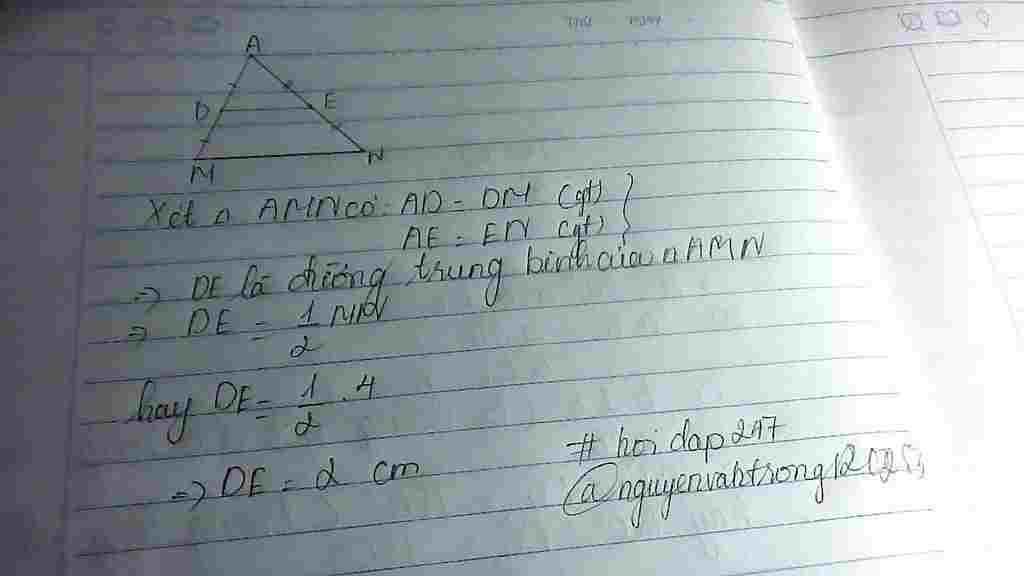 A
D
E
M
N
Xét Δ AMN có: AD = DM (gt)
AE = EN (gt) }
=> DE là đường trung bình của Δ AMN
=> DE = 1/2 MN
hay DE = 1/2 . 4
=> DE = 2 cm
# hoidap247